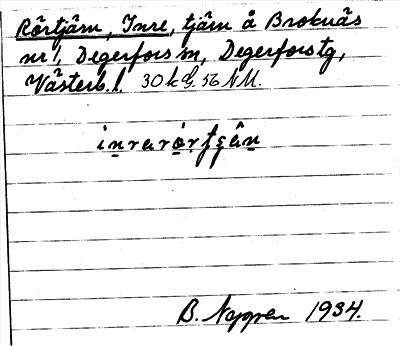 Rörtjärn, Inre, tjärn å Broknäs
nr 1, Degerfors sn, Degerfors tg,
Västerb. l. 30 k G. 56 NM.
inrarörtçän
B. 1934.